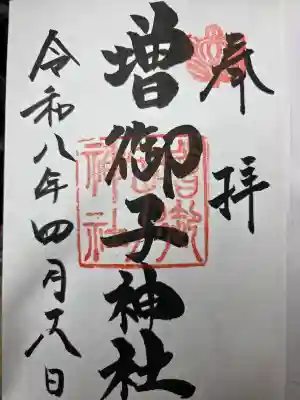 奉拝
増御子神社
令和八年四月日